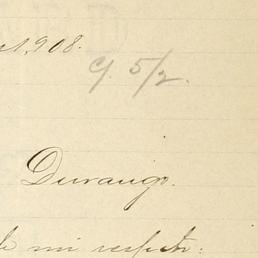 1,908.
C 5/2.
Durango.
de mi respeto: